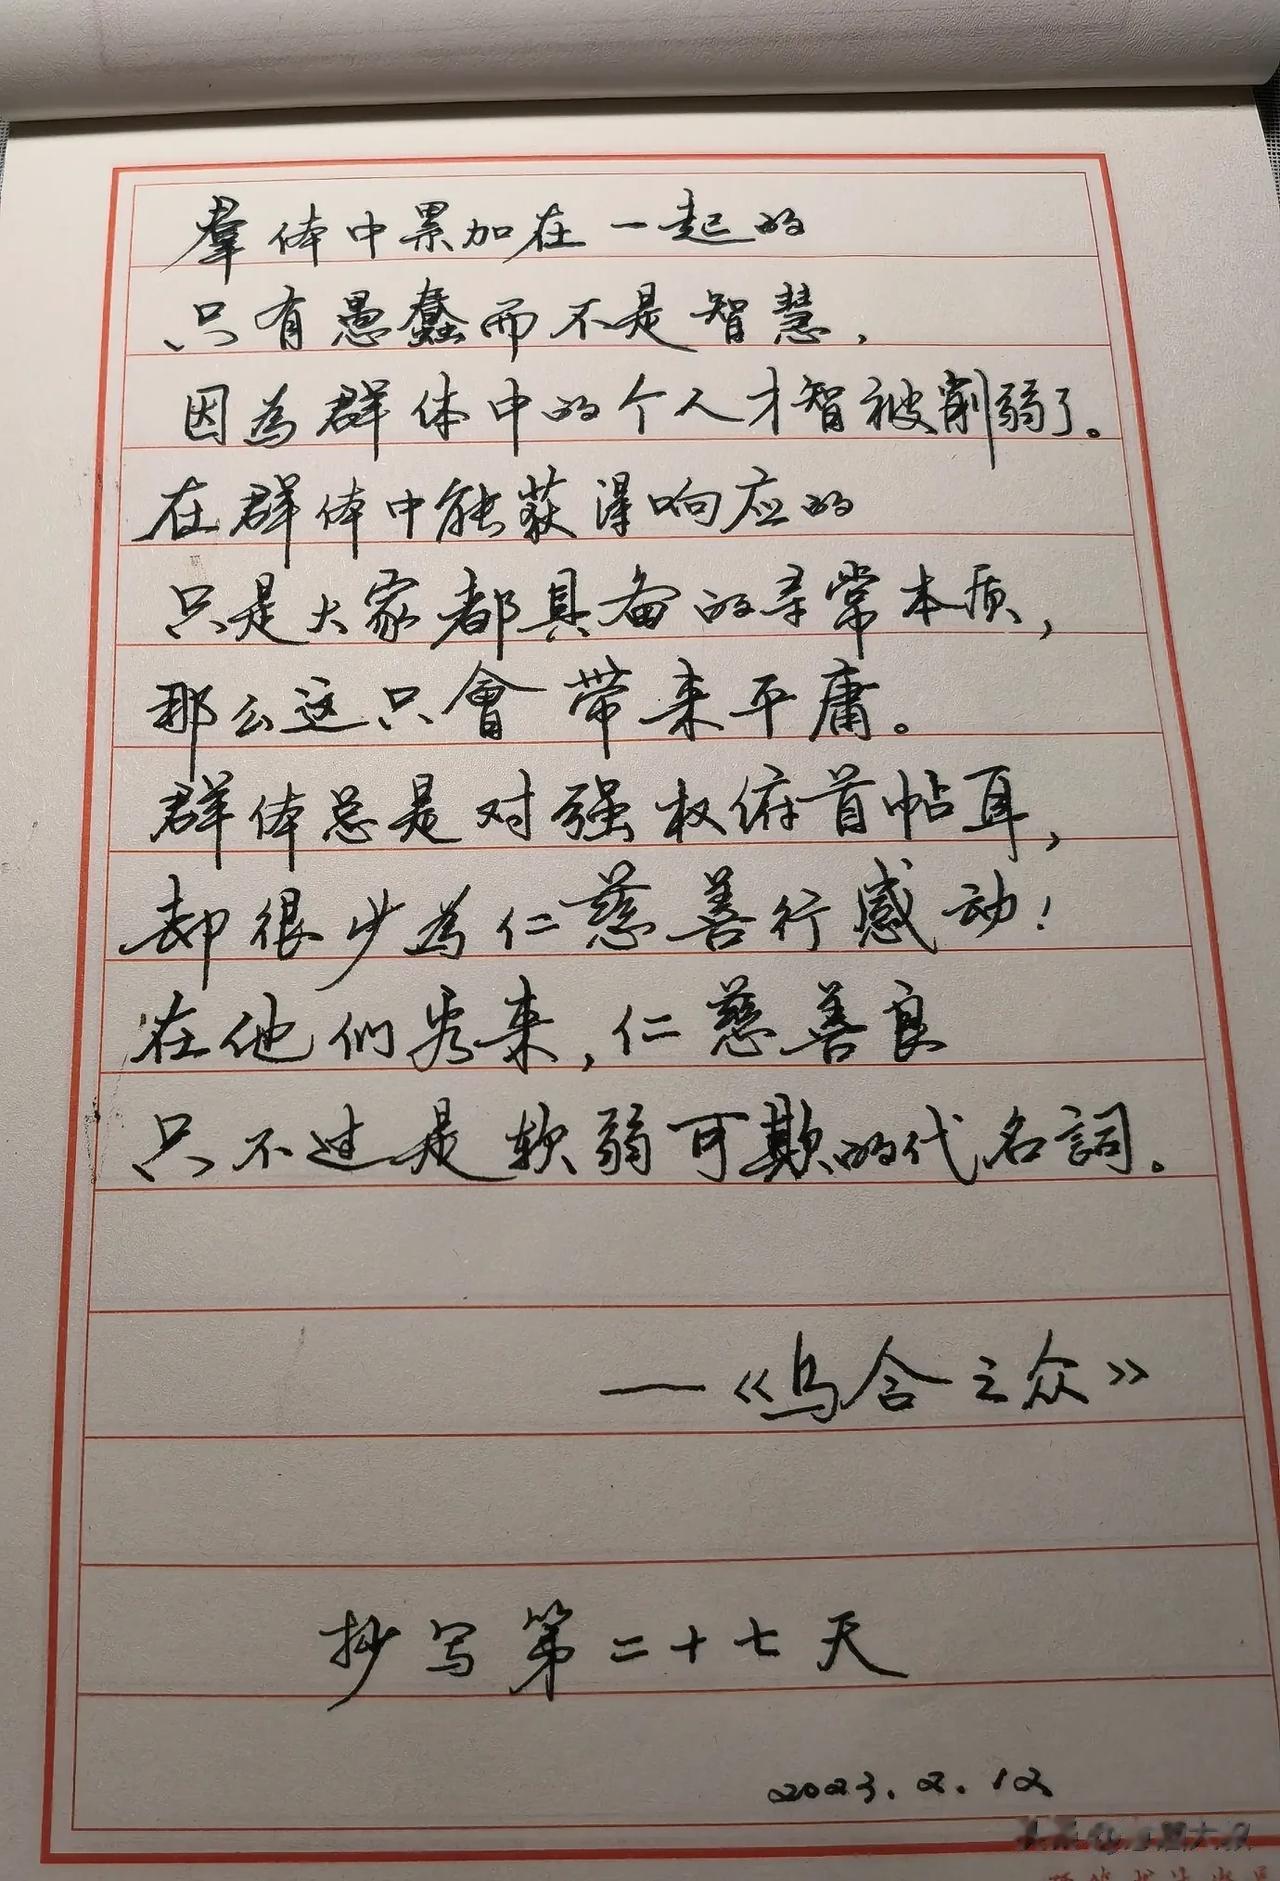 羣体中累加在一起的
只有愚蠢而不是智慧，
因為群体中的个人才智被削弱了。
在群体中能获得响应的
只是大家都具备的寻常本质，
那么这只會带来平庸。
群体总是对强权俯首帖耳，
却很少為仁慈善行感动！
在他们看来，仁慈善良
只不过是软弱可欺的代名詞。
—《乌合之众》
抄写第二十七天
2023.2.12